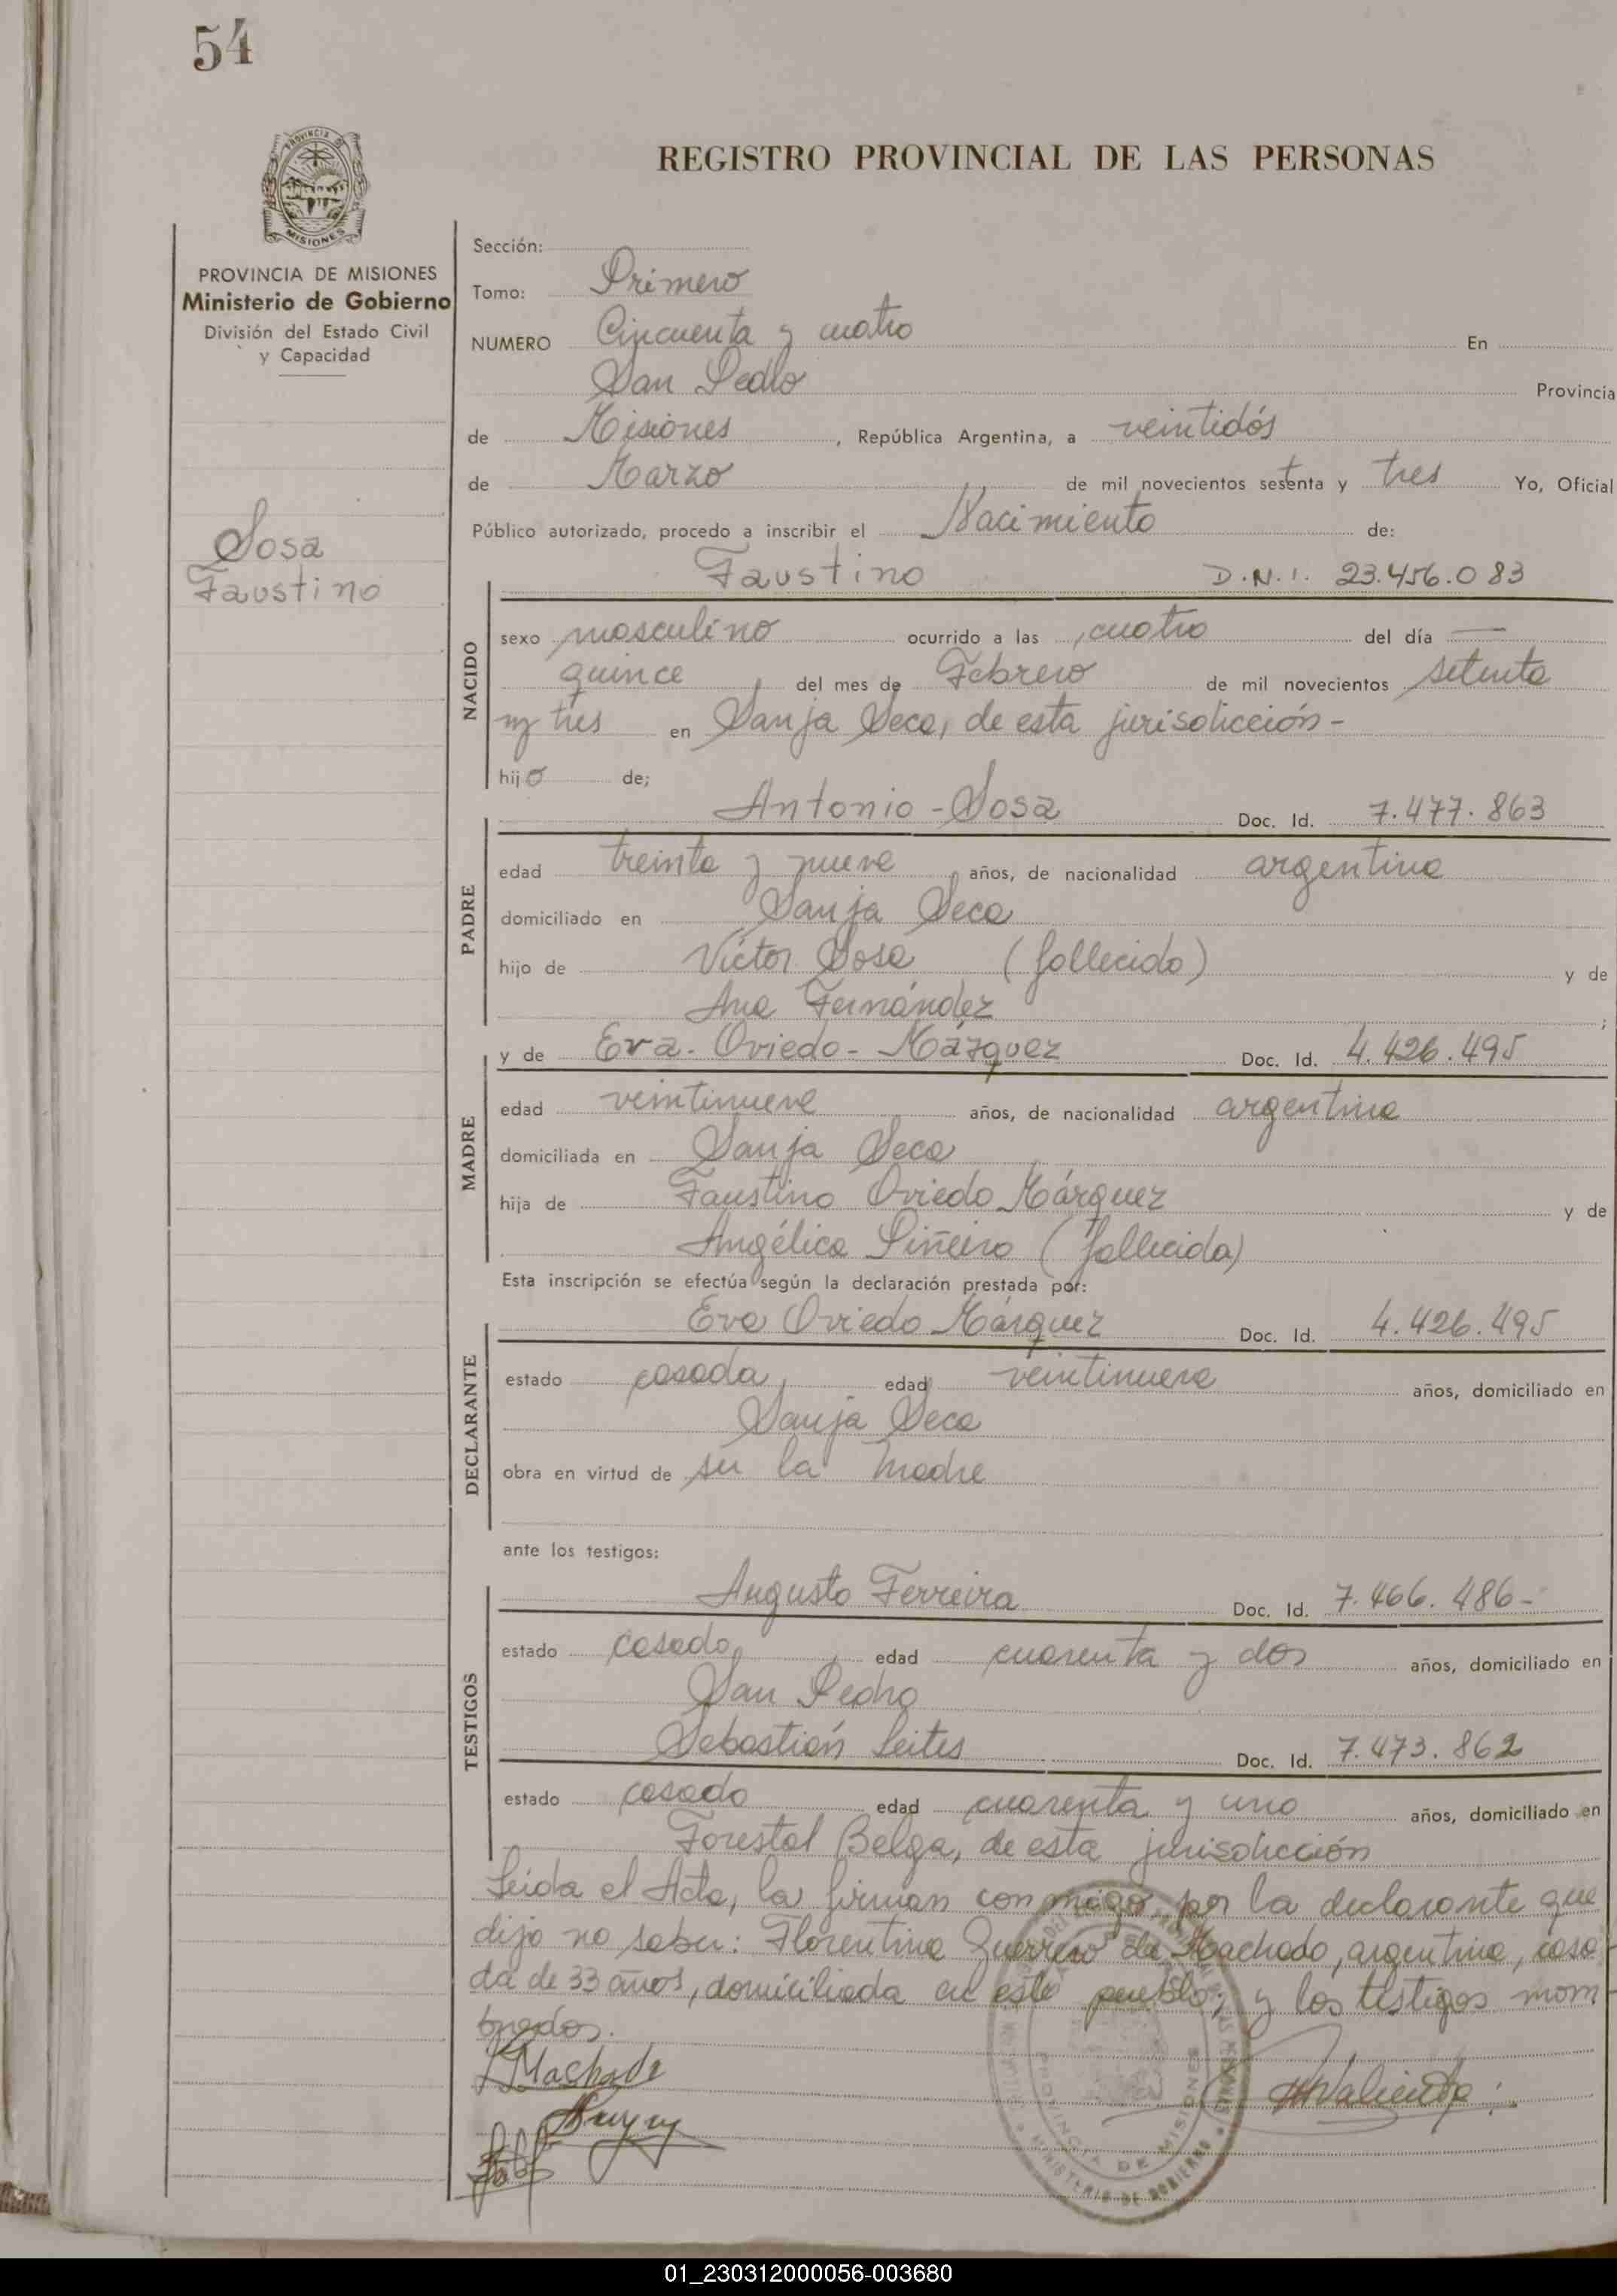 54
PROVINCIA DE
MISIONES
REGISTRO PROVINCIAL DE LAS PERSONAS
PROVINCIA DE MISIONES
Ministerio de Gobierno
División del Estado Civil
y Capacidad
Sosa
Faustino
Sección:
Tomo: Primero
NUMERO Cincuenta y cuatro En
San Pedro Provincia
de Misiones, República Argentina, a veintidós
de Marzo de mil novecientos setenta y tres Yo, Oficial
Público autorizado, procedo a inscribir el Nacimiento de:
Faustino D.N.I. 23.456.083
NACIDO
sexo masculino ocurrido a las cuatro del día —
quince del mes de Febrero de mil novecientos setenta
y tres en Sanja Seca, de esta jurisdicción -
hijo de;
Antonio - Sosa Doc. Id. 7.477.863
PADRE
edad treinta y nueve años, de nacionalidad argentina
domiciliado en Sanja Seca
hijo de Víctor Sosa (fallecido) y de
Ana Fernández ;
y de Eva - Oviedo - Márquez Doc. Id. 4.426.495
MADRE
edad veintinueve años, de nacionalidad argentina
domiciliada en Sanja Seca
hija de Faustino Oviedo Márquez y de
Angélica Piñeiro (fallecida)
Esta inscripción se efectúa según la declaración prestada por:
Eva Oviedo Márquez Doc. Id. 4.426.495
DECLARANTE
estado casada edad veintinueve años, domiciliado en
Sanja Seca
obra en virtud de su la madre
ante los testigos:
Augusto Ferreira Doc. Id. 7.466.486-
TESTIGOS
estado casado edad cuarenta y dos años, domiciliado en
San Pedro
Sebastián Leites Doc. Id. 7.473.862
estado casado edad cuarenta y uno años, domiciliado en
Forestal Belga, de esta jurisdicción
Leida el Acta, la firman conmigo, por la declarante que
dijo no saber: Florentina Guerrero de Machado, argentina, casa-
da de 33 años, domiciliada en este pueblo; y los testigos mom-
brados.
Machado
PROVINCIA DE MISIONES
MINISTERIO DE GOBIERNO
01_230312000056-003680